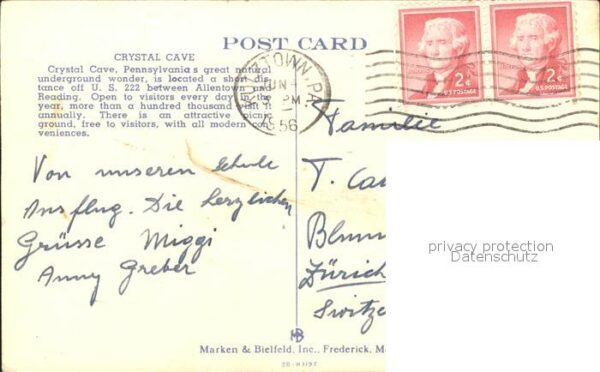 POST CARD
CRYSTAL CAVE
Crystal Cave, Pennsylvania's great natural
underground wonder, is located a short dis-
tance off U. S. 222 between Allentown and
Reading. Open to visitors every day in the
year, more than a hundred thousand visit it
annually. There is an attractive picnic
ground, free to visitors, with all modern con-
veniences.
TZTOWN, PA.
JUN
PM
1956
2¢
U.S. POSTAGE
2¢
U.S. POSTAGE
Von unseren Schule
Ausflug. Die herzlichen
Grüsse Miggi
Anny Greber
Familie
T. Ca
Blum
Zürich
Switze
privacy protection
Datenschutz
HB
Marken & Bielfeld. Inc., Frederick, M